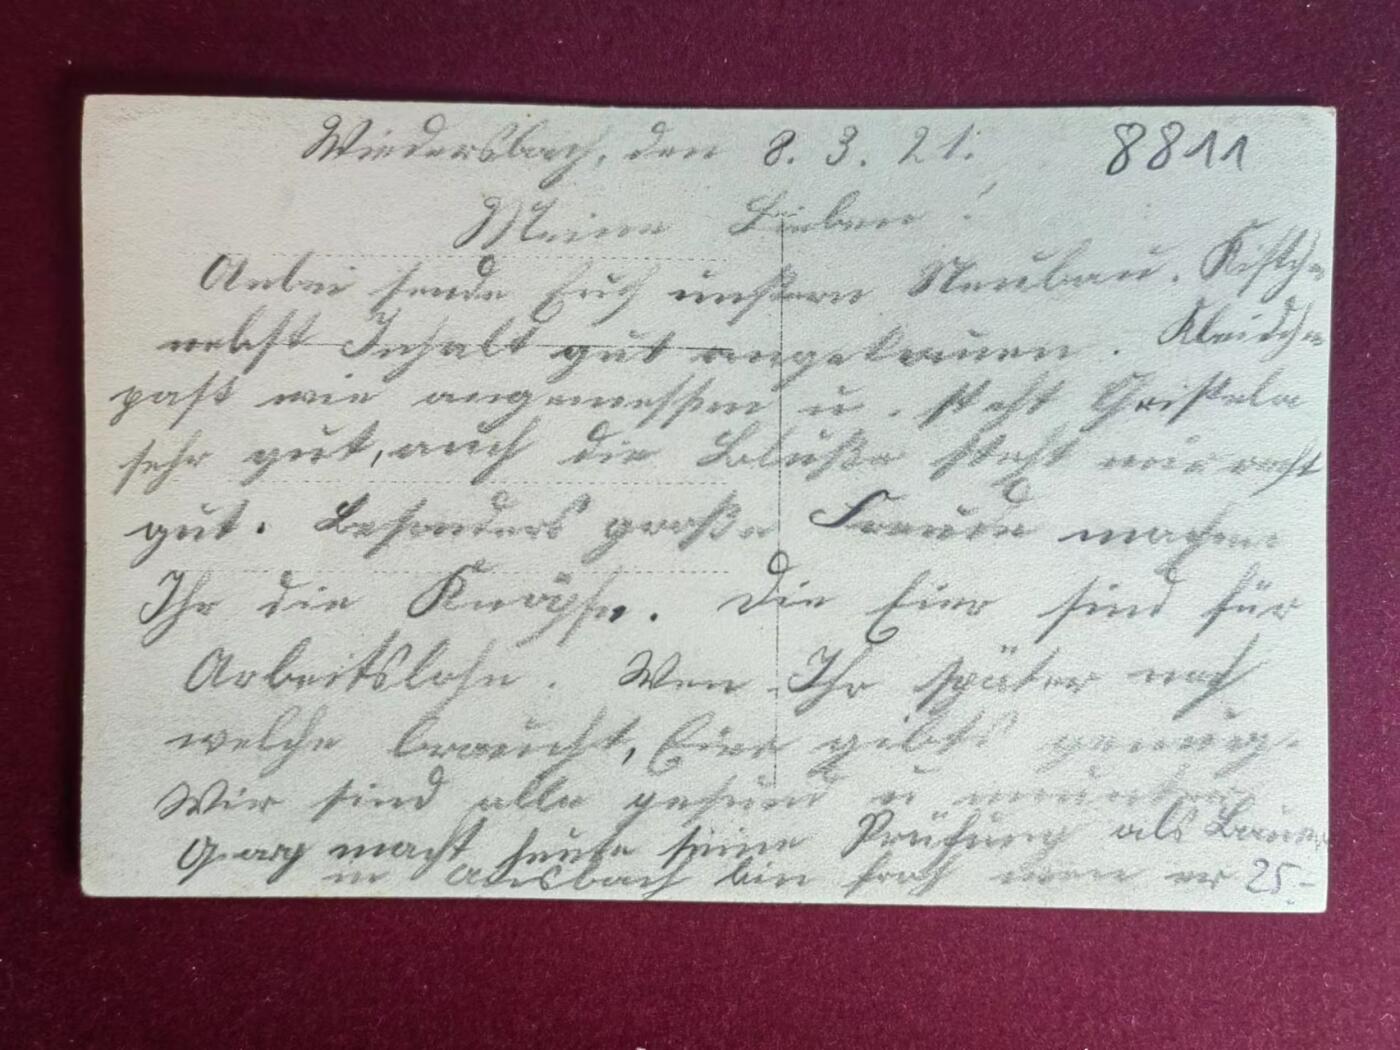 Wiedersbach, den 8. 3. 21. 8811
Meine Lieben!
Anbei sende Euch unsern Neubau. Kistchen
nebst Inhalt gut angekommen. Kleidchen
past wie angemessen u. steht
sehr gut, auch die Bluße steht mir recht
gut. Besonders große Freude machen
Ihr die Knöpfe. Die Eier sind für
Arbeitslohn. Wen Ihr später noch
welche braucht, Eier gibts genug.
Wir sind alle gesund u munter
Georg macht heute seine Prüfung als Bauer
in Ansbach bin froh wen er 25-